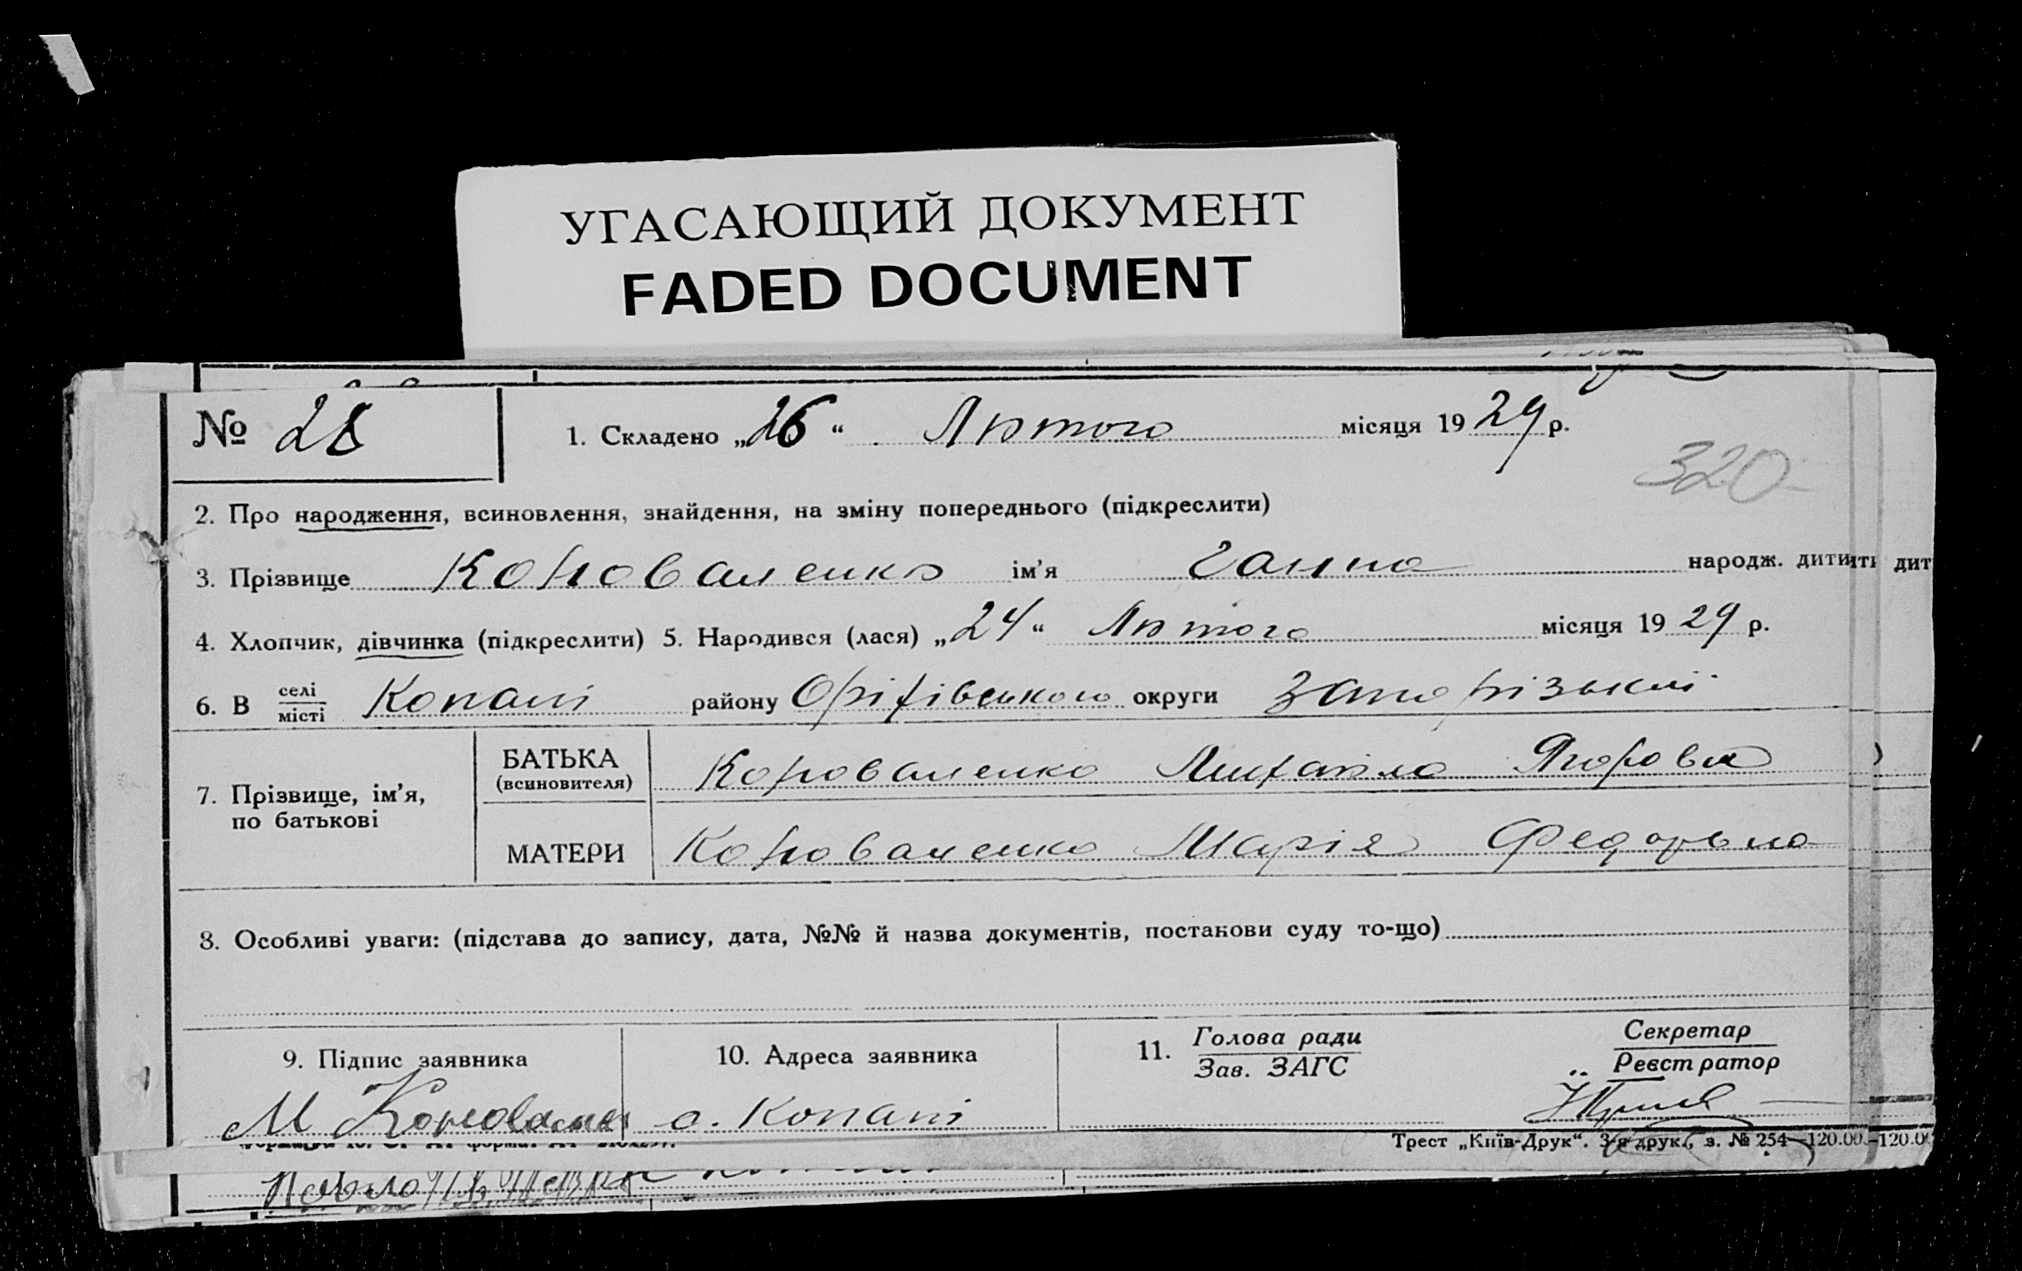 УГАСАЮЩИЙ ДОКУМЕНТ
FADED DOCUMENT
№ 28
1. Складено „26“ Лютого місяця 1929 р.
320
2. Про народження, всиновлення, знайдення, на зміну попереднього (підкреслити)
3. Прізвище Коноваленко ім’я Ганна народж. дитин
4. Хлопчик, дівчинка (підкреслити) 5. Народився (лася) „24“ Лютого місяця 1929 р.
6. В селі місті Копані району Оріхівського округи Запорізької
7. Прізвище, ім’я, по батькові
БАТЬКА (всиновителя) Коноваленко Михайло
МАТЕРИ Коноваленко Марія Федорівна
8. Особливі уваги: (підстава до запису, дата, №№ й назва документів, постанови суду то-що)
9. Підпис заявника
10. Адреса заявника
11. Голова ради Зав. ЗАГС
Секретар Реєстратор
М Коновален с. Копані
Трест „Київ-Друк“. 3-я друк., з. № 254—120.00